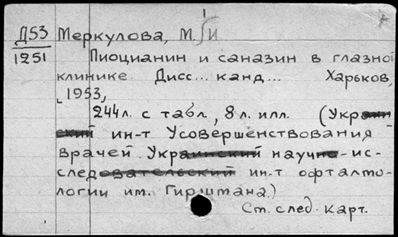 Д53 Меркулова, М. И
1251 Пиоцианин и саназин в глазной
клинике Дисс... канд... Харьков,
1953,
244л. с табл., 8 л. илл. (Украин
ский ин-т Усовершенствования
врачей Украинский научно-ис-
следовательский ин-т офталмо-
логии им. Гиршмана.)
См. след. карт.